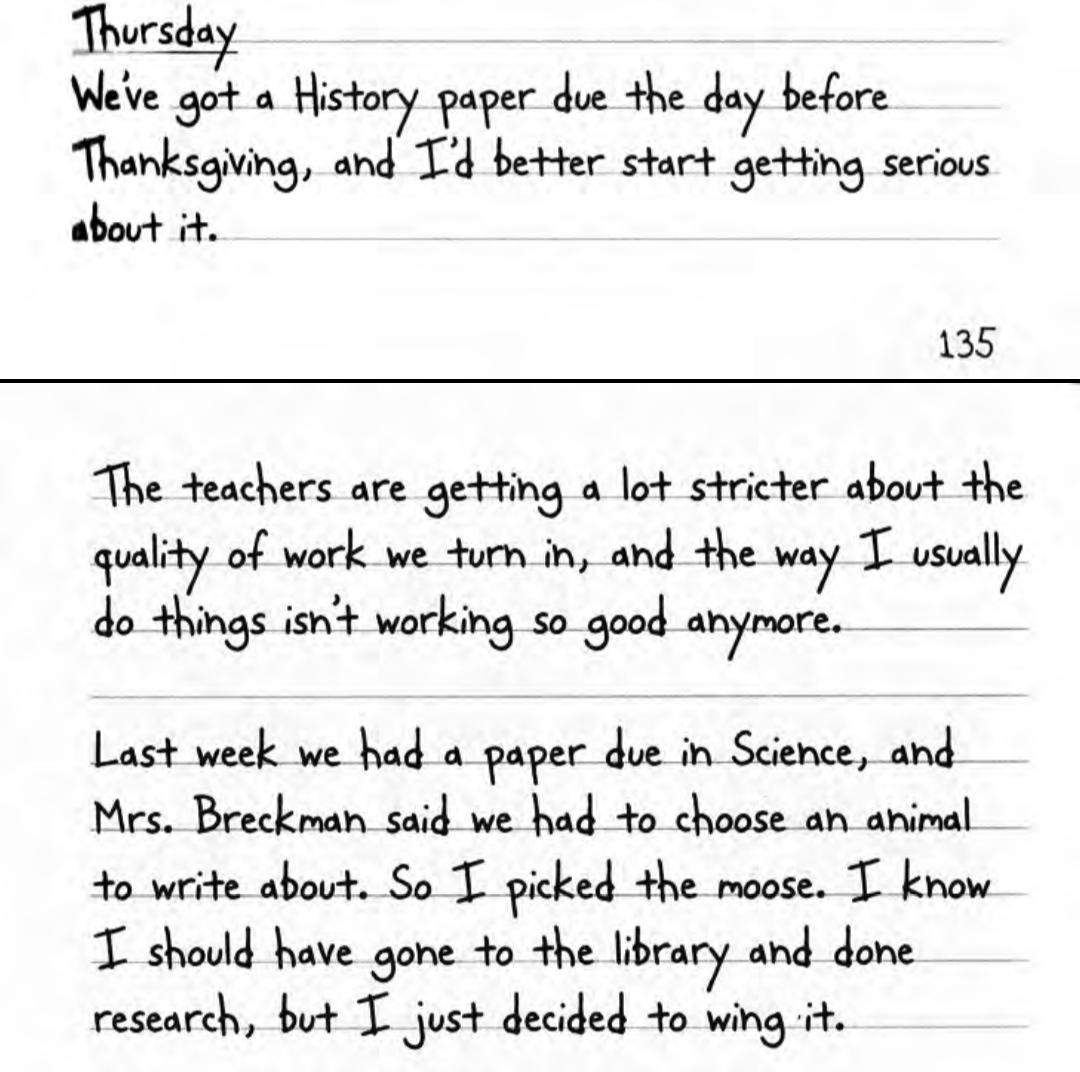 Thursday
We've got a History paper due the day before
Thanksgiving, and I'd better start getting serious
about it.
135
The teachers are getting a lot stricter about the
quality of work we turn in, and the way I usually
do things isn't working so good anymore.
Last week we had a paper due in Science, and
Mrs. Breckman said we had to choose an animal
to write about. So I picked the moose. I know
I should have gone to the library and done
research, but I just decided to wing it.